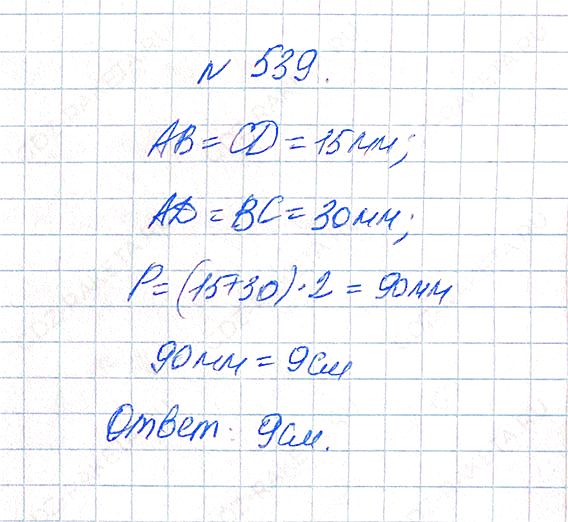 № 539.
AB = CD = 15мм;
AD = BC = 30мм;
P = (15+30)·2 = 90мм
90мм = 9см
Ответ: 9см.